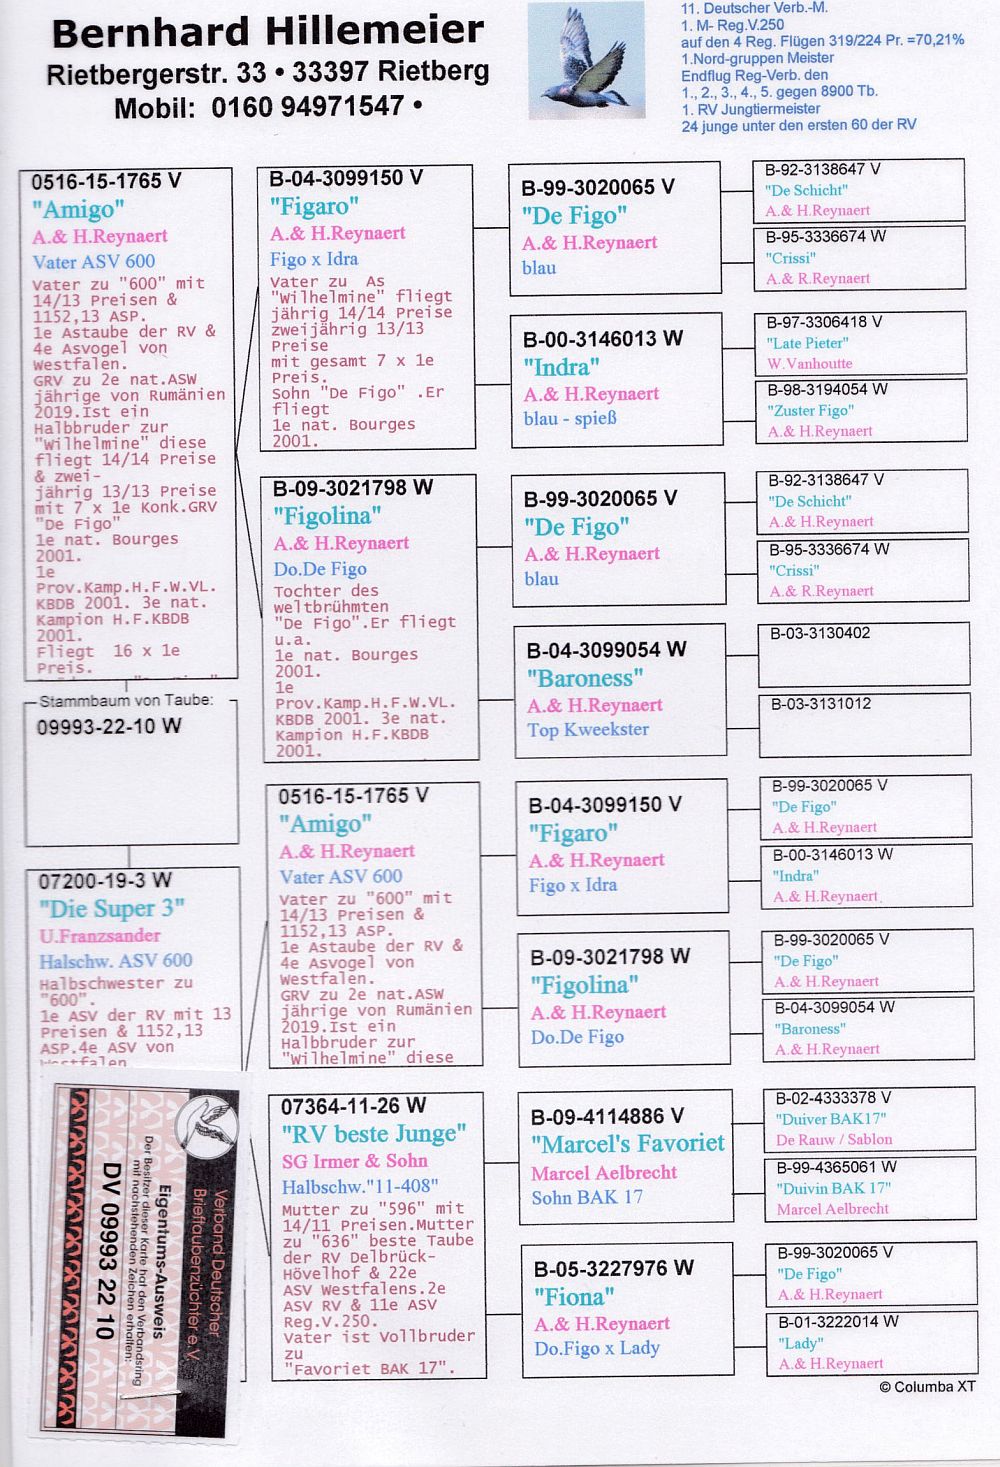 Bernhard Hillemeier
Rietbergerstr. 33 • 33397 Rietberg
Mobil: 0160 94971547 •
11. Deutscher Verb.-M.
1. M- Reg.V.250
auf den 4 Reg. Flügen 319/224 Pr. =70,21%
1.Nord-gruppen Meister
Endflug Reg-Verb. den
1., 2., 3., 4., 5. gegen 8900 Tb.
1. RV Jungtiermeister
24 junge unter den ersten 60 der RV
0516-15-1765 V
"Amigo"
A.& H.Reynaert
Vater ASV 600
Vater zu "600" mit
14/13 Preisen &
1152,13 ASP.
1e Astaube der RV &
4e Asvogel von
Westfalen.
GRV zu 2e nat.ASW
jährige von Rumänien
2019.Ist ein
Halbbruder zur
"Wilhelmine" diese
fliegt 14/14 Preise
& zwei-
jährig 13/13 Preise
mit 7 x 1e Konk.GRV
"De Figo"
1e nat. Bourges
2001.
1e
Prov.Kamp.H.F.W.VL.
KBDB 2001. 3e nat.
Kampion H.F.KBDB
2001.
Fliegt 16 x 1e
Preis.
Stammbaum von Taube:
09993-22-10 W
07200-19-3 W
"Die Super 3"
U.Franzsander
Halschw. ASV 600
Halbschwester zu
"600".
1e ASV der RV mit 13
Preisen & 1152,13
ASP.4e ASV von
Westfalen
Verband Deutscher
Brieftaubenzüchter e.V.
Eigentums-Ausweis
Der Besitzer dieser Karte hat den Verbandsring
mit nachstehenden Zeichen erhalten:
DV 09993 22 10
B-04-3099150 V
"Figaro"
A.& H.Reynaert
Figo x Idra
Vater zu As
"Wilhelmine" fliegt
jährig 14/14 Preise
zweijährig 13/13
Preise
mit gesamt 7 x 1e
Preis.
Sohn "De Figo" .Er
fliegt
1e nat. Bourges
2001.
B-09-3021798 W
"Figolina"
A.& H.Reynaert
Do.De Figo
Tochter des
weltbrühmten
"De Figo".Er fliegt
u.a.
1e nat. Bourges
2001.
1e
Prov.Kamp.H.F.W.VL.
KBDB 2001. 3e nat.
Kampion H.F.KBDB
2001.
0516-15-1765 V
"Amigo"
A.& H.Reynaert
Vater ASV 600
Vater zu "600" mit
14/13 Preisen &
1152,13 ASP.
1e Astaube der RV &
4e Asvogel von
Westfalen.
GRV zu 2e nat.ASW
jährige von Rumänien
2019.Ist ein
Halbbruder zur
"Wilhelmine" diese
07364-11-26 W
"RV beste Junge"
SG Irmer & Sohn
Halbschw."11-408"
Mutter zu "596" mit
14/11 Preisen.Mutter
zu "636" beste Taube
der RV Delbrück-
Hövelhof & 22e
ASV Westfalens.2e
ASV RV & 11e ASV
Reg.V.250.
Vater ist Vollbruder
zu
"Favoriet BAK 17".
B-99-3020065 V
"De Figo"
A.& H.Reynaert
blau
B-00-3146013 W
"Indra"
A.& H.Reynaert
blau - spieß
B-99-3020065 V
"De Figo"
A.& H.Reynaert
blau
B-04-3099054 W
"Baroness"
A.& H.Reynaert
Top Kweekster
B-04-3099150 V
"Figaro"
A.& H.Reynaert
Figo x Idra
B-09-3021798 W
"Figolina"
A.& H.Reynaert
Do.De Figo
B-09-4114886 V
"Marcel's Favoriet
Marcel Aelbrecht
Sohn BAK 17
B-05-3227976 W
"Fiona"
A.& H.Reynaert
Do.Figo x Lady
B-92-3138647 V
"De Schicht"
A.& H.Reynaert
B-95-3336674 W
"Crissi"
A.& R.Reynaert
B-97-3306418 V
"Late Pieter"
W.Vanhoutte
B-98-3194054 W
"Zuster Figo"
A.& H.Reynaert
B-92-3138647 V
"De Schicht"
A.& H.Reynaert
B-95-3336674 W
"Crissi"
A.& R.Reynaert
B-03-3130402
B-03-3131012
B-99-3020065 V
"De Figo"
A.& H.Reynaert
B-00-3146013 W
"Indra"
A.& H.Reynaert
B-99-3020065 V
"De Figo"
A.& H.Reynaert
B-04-3099054 W
"Baroness"
A.& H.Reynaert
B-02-4333378 V
"Duiver BAK17"
De Rauw / Sablon
B-99-4365061 W
"Duivin BAK 17"
Marcel Aelbrecht
B-99-3020065 V
"De Figo"
A.& H.Reynaert
B-01-3222014 W
"Lady"
A.& H.Reynaert
© Columba XT